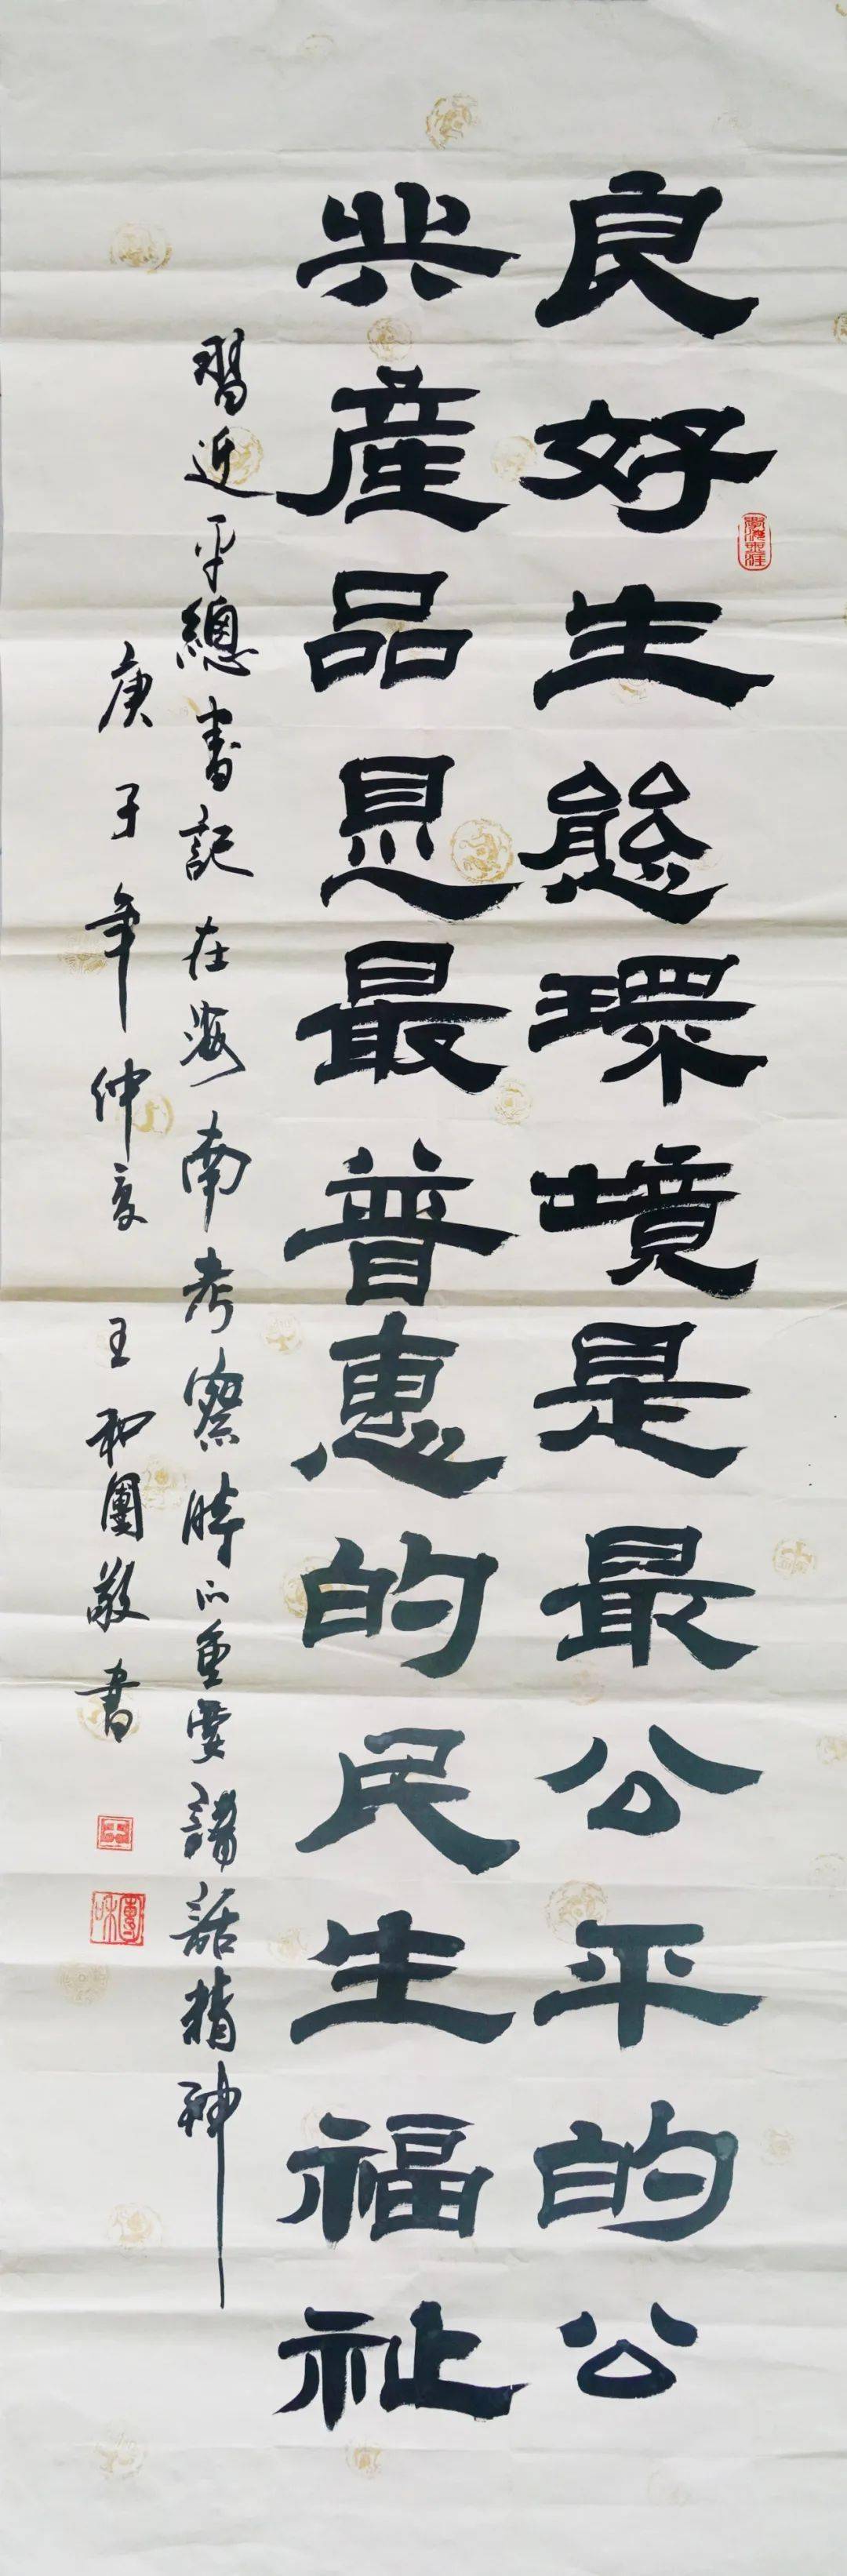 良好生態環境是最公平的公
共産品是最普惠的民生福祉
習近平總書記在海南考察時的重要講話精神
庚子年仲夏 王和團敬書
王
和團